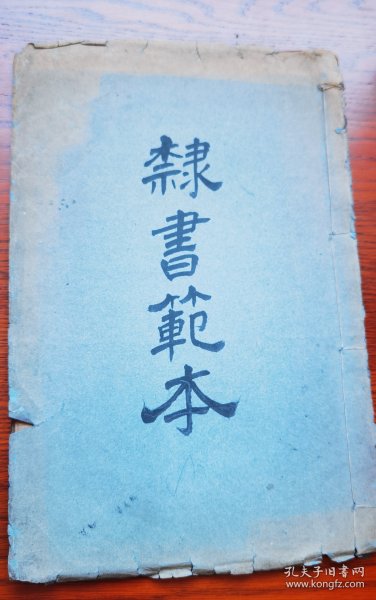 隸書範本
孔夫子旧书网
www.kongfz.com